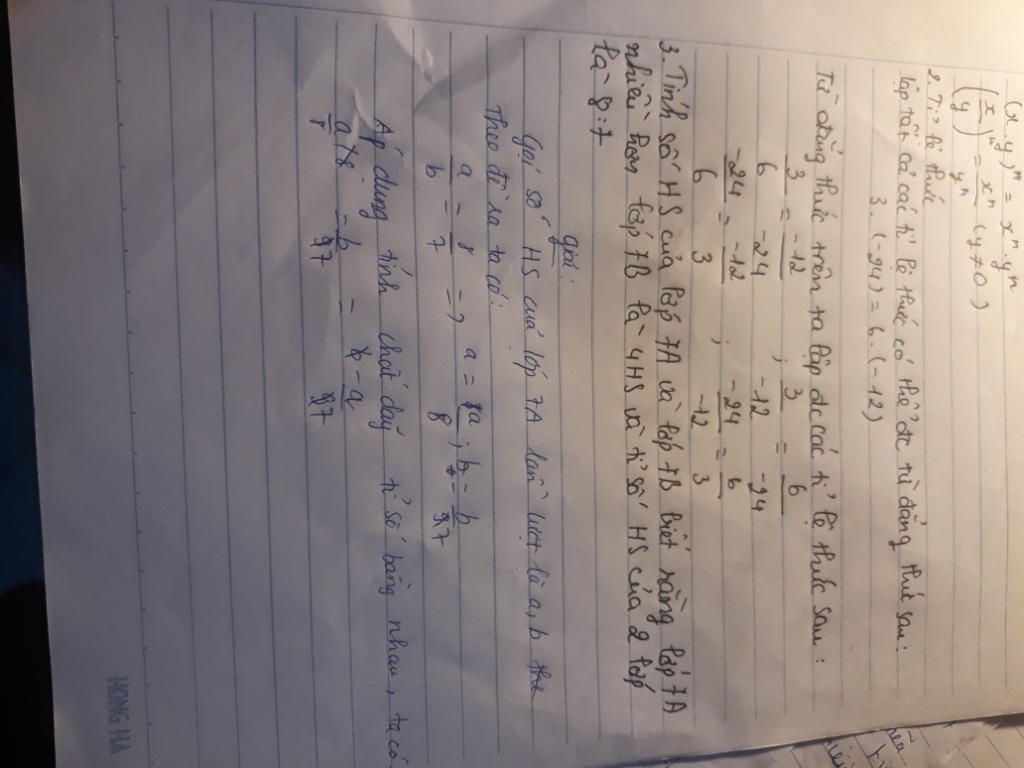 (x.y)ⁿ = xⁿ.yⁿ
(x/y)ⁿ = xⁿ/yⁿ (y≠0)
2. Tỉ lệ thức
lập tất cả các tỉ lệ thức có thể đc từ đẳng thức sau:
3.(-24) = 6.(-12)
Từ đẳng thức trên ta lập đc các tỉ lệ thức sau:
3/6 = -12/-24 ; 3/-12 = 6/-24
-24/6 = -12/3 ; -24/-12 = 6/3
3. Tính số HS của lớp 7A và lớp 7B biết rằng lớp 7A
nhiều hơn lớp 7B là 4HS và tỉ số HS của 2 lớp
là 8:7
giải:
Gọi số HS của lớp 7A lần lượt là a, b
Theo đề ra ta có:
a/b = 8/7 => a = a/8 ; b = b/7
Áp dụng tính chất dãy tỉ số bằng nhau, ta có